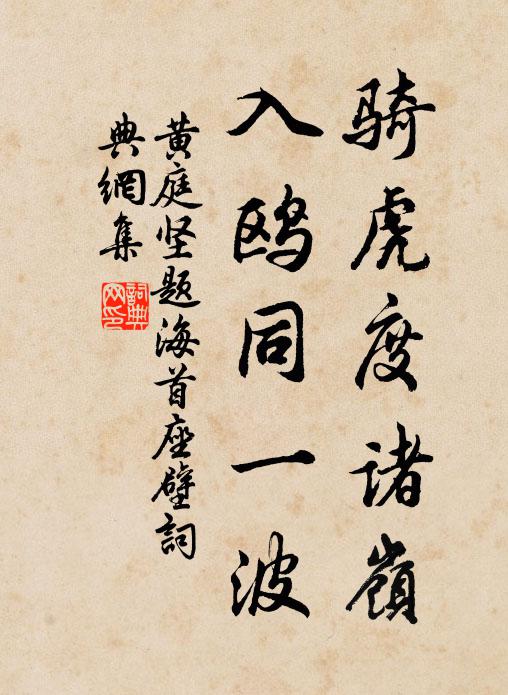 骑虎度诸嶺
入鸥同一波
黄庭坚题海首座壁詞
典網集
詞典网印